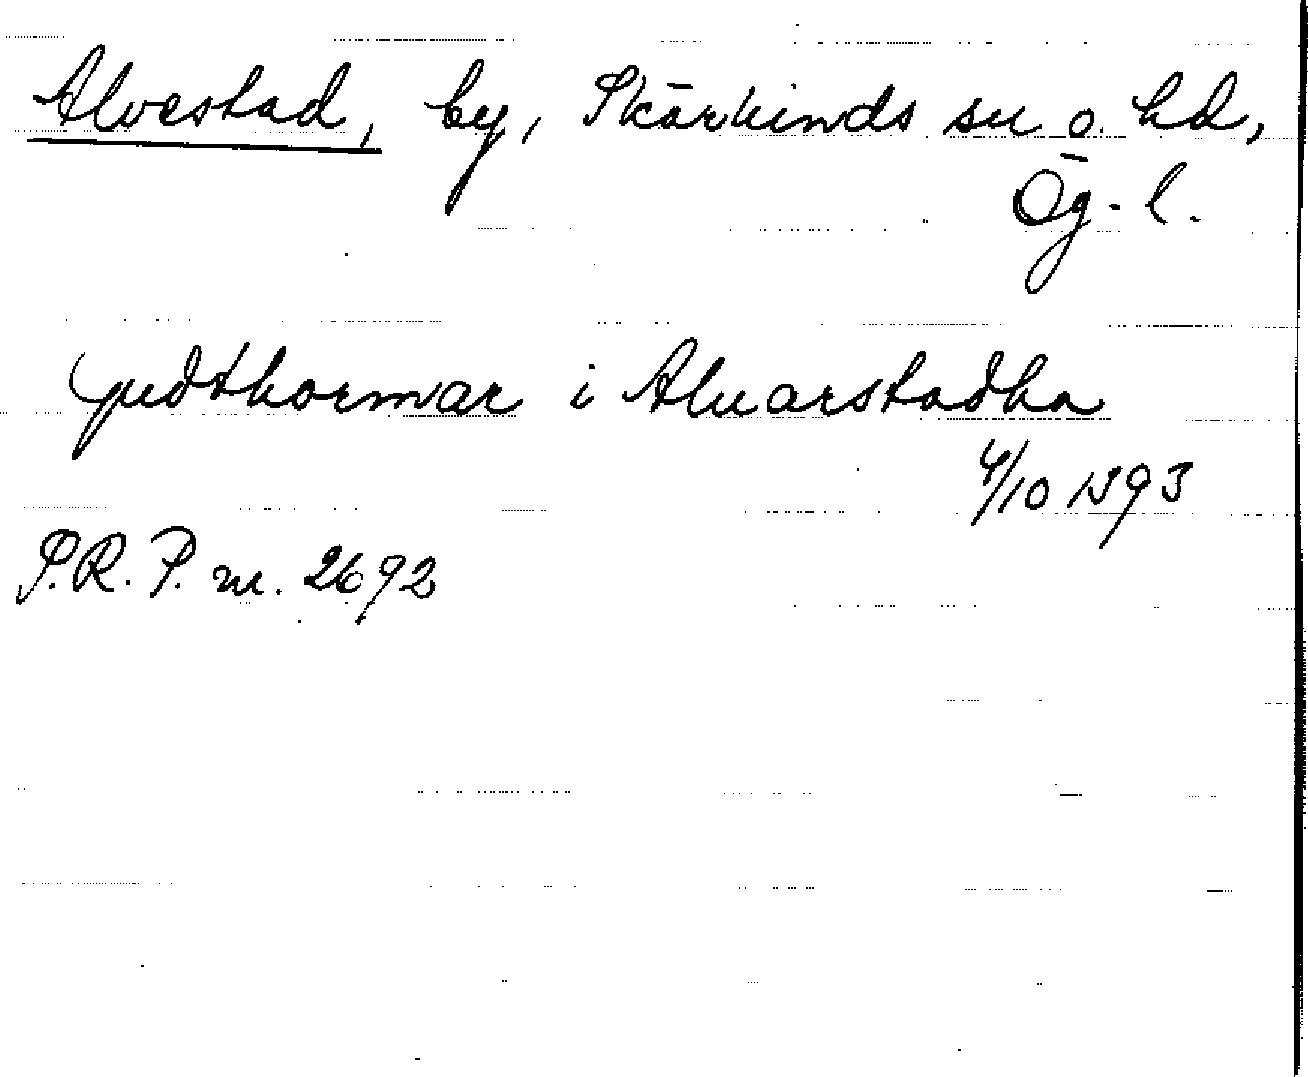 Alvestad, by, Skärkinds sn o. hd,
Ög. l.
gudthormar i Aluarstadha
4/10 1393
S.R.P. nr. 2692